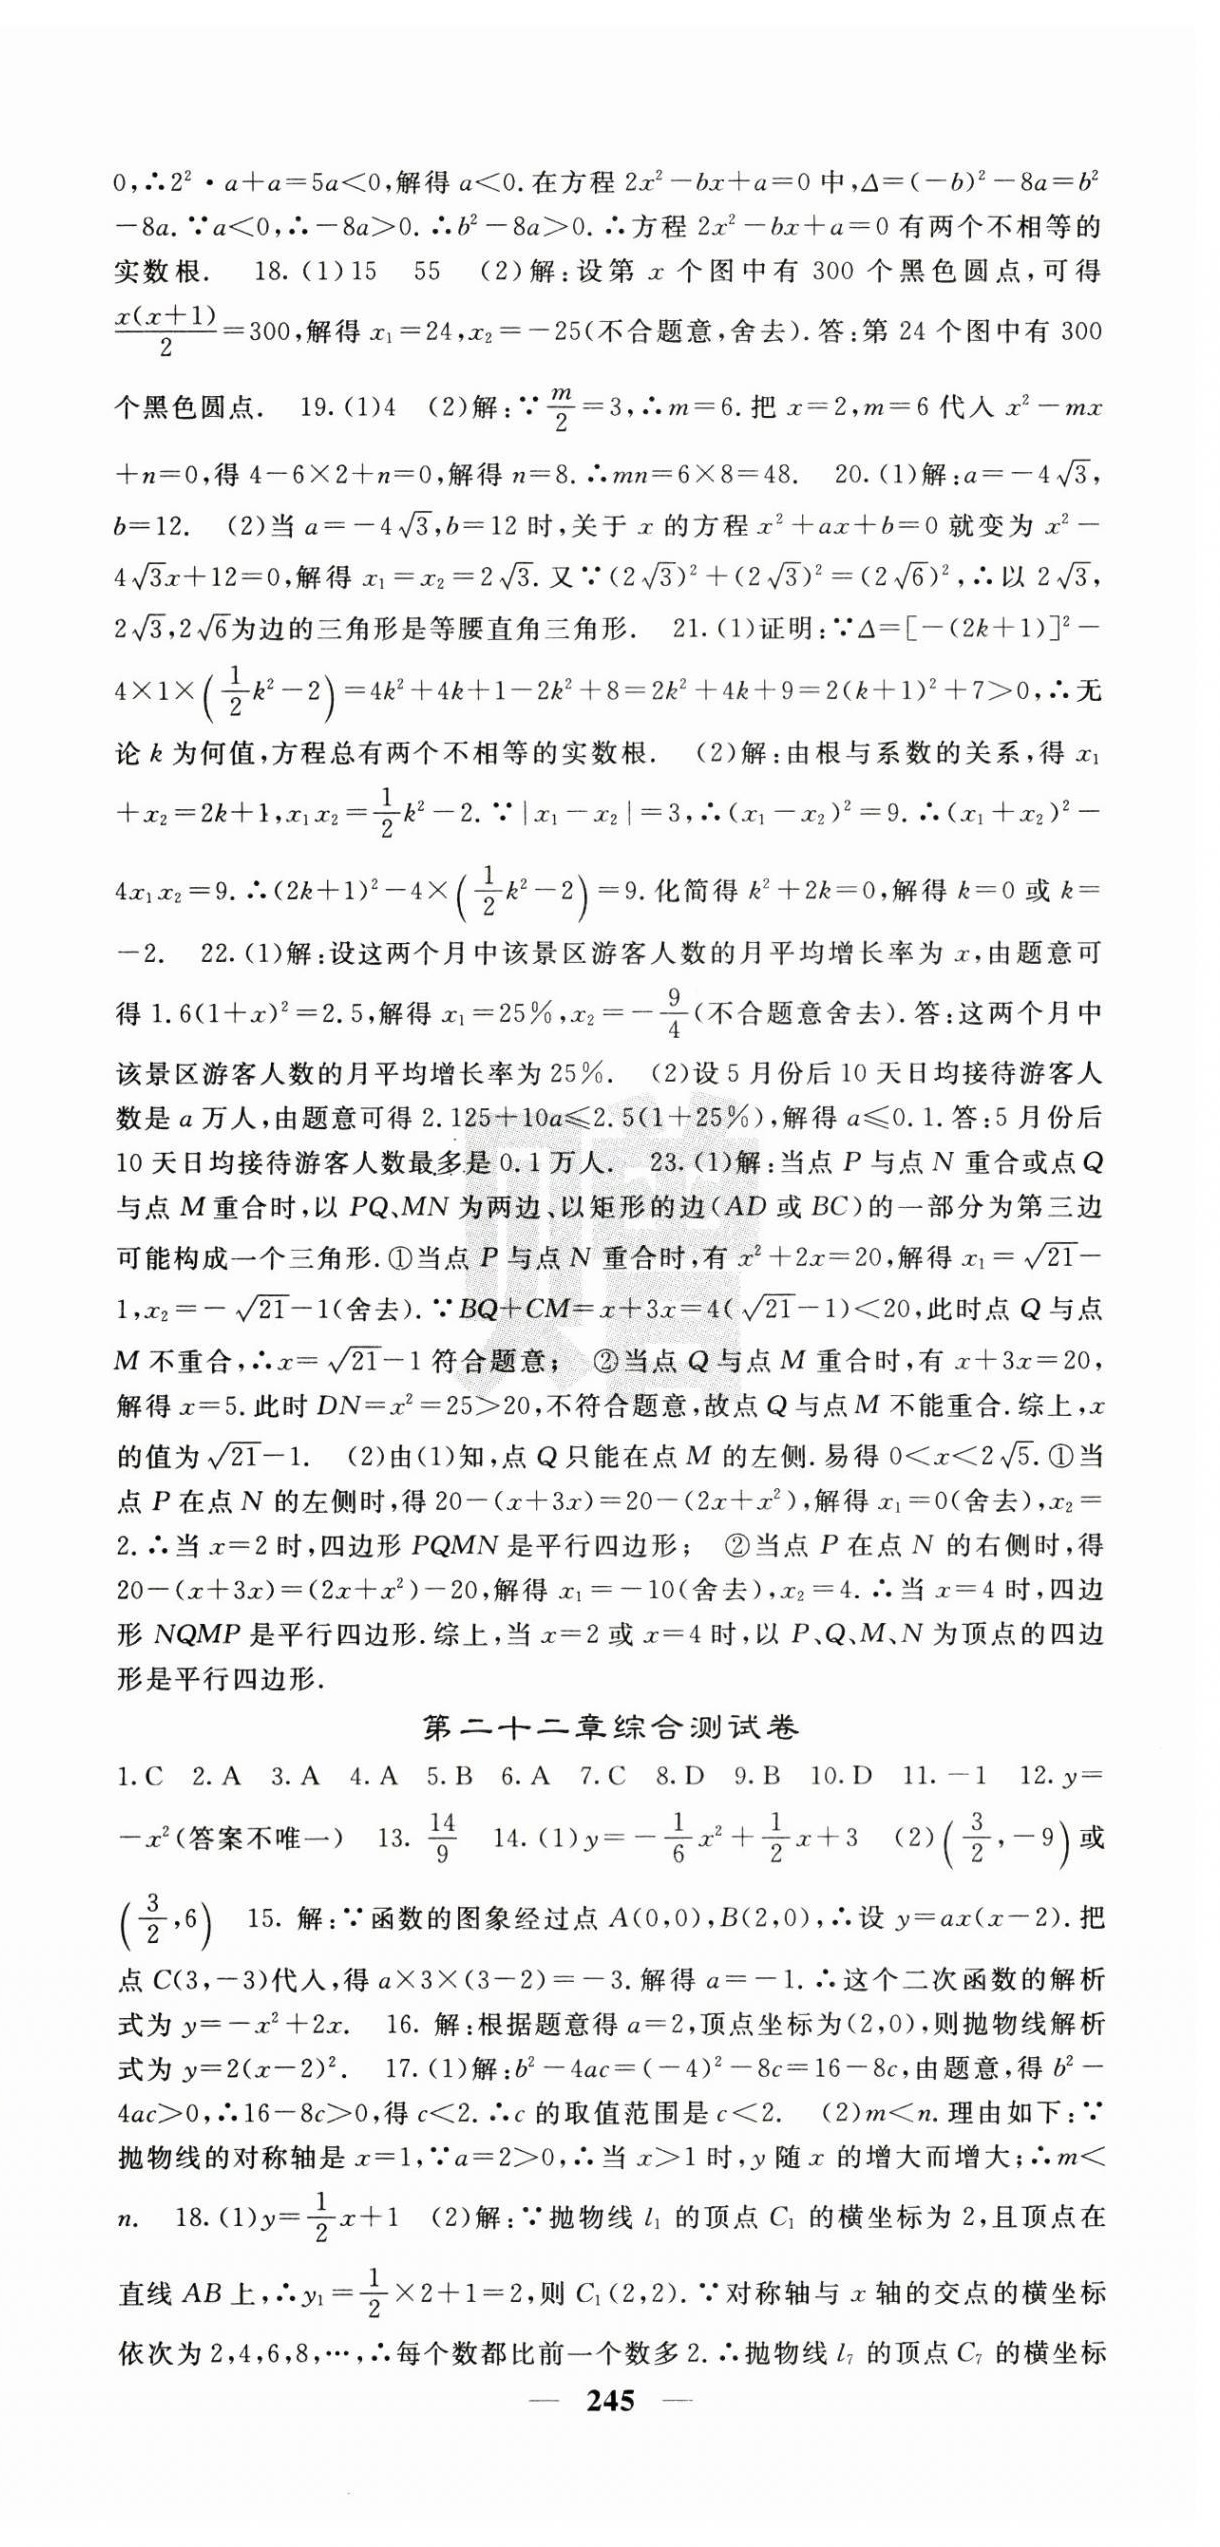 0,∴2²·a+a=5a<0,解得 a<0.在方程 2x²-bx+a=0 中,Δ=(-b)²-8a=b²
-8a.∵a<0,∴-8a>0.∴b²-8a>0.∴方程 2x²-bx+a=0 有两个不相等的
实数根. 18.(1)15 55 (2)解:设第 x 个图中有 300 个黑色圆点,可得
x(x+1)/2=300,解得 x₁=24,x₂=-25(不合题意,舍去).答:第 24 个图中有 300
个黑色圆点. 19.(1)4 (2)解:∵m/2=3,∴m=6.把 x=2,m=6 代入 x²-mx
+n=0,得 4-6×2+n=0,解得 n=8.∴mn=6×8=48. 20.(1)解:a=-4√3,
b=12. (2)当 a=-4√3,b=12 时,关于 x 的方程 x²+ax+b=0 就变为 x²-
4√3x+12=0,解得 x₁=x₂=2√3.又∵(2√3)²+(2√3)²=(2√6)²,∴以 2√3,
2√3,2√6为边的三角形是等腰直角三角形. 21.(1)证明:∵Δ=[-(2k+1)]²-
4×1×(1/2k²-2)=4k²+4k+1-2k²+8=2k²+4k+9=2(k+1)²+7>0,∴无
论 k 为何值,方程总有两个不相等的实数根. (2)解:由根与系数的关系,得 x₁
+x₂=2k+1,x₁x₂=1/2k²-2.∵|x₁-x₂|=3,∴(x₁-x₂)²=9.∴(x₁+x₂)²-
4x₁x₂=9.∴(2k+1)²-4×(1/2k²-2)=9.化简得 k²+2k=0,解得 k=0 或 k=
-2. 22.(1)解:设这两个月中该景区游客人数的月平均增长率为 x,由题意可
得 1.6(1+x)²=2.5,解得 x₁=25%,x₂=-9/4(不合题意舍去).答:这两个月中
该景区游客人数的月平均增长率为 25%. (2)设 5 月份后 10 天日均接待游客人
数是 a 万人,由题意可得 2.125+10a≤2.5(1+25%),解得 a≤0.1.答:5 月份后
10 天日均接待游客人数最多是 0.1 万人. 23.(1)解:当点 P 与点 N 重合或点 Q
与点 M 重合时,以 PQ、MN 为两边、以矩形的边(AD 或 BC)的一部分为第三边
可能构成一个三角形.①当点 P 与点 N 重合时,有 x²+2x=20,解得 x₁=√21-
1,x₂=-√21-1(舍去).∵BQ+CM=x+3x=4(√21-1)<20,此时点 Q 与点
M 不重合,∴x=√21-1 符合题意; ②当点 Q 与点 M 重合时,有 x+3x=20,
解得 x=5.此时 DN=x²=25>20,不符合题意,故点 Q 与点 M 不能重合.综上,x
的值为√21-1. (2)由(1)知,点 Q 只能在点 M 的左侧.易得 0<x<2√5.①当
点 P 在点 N 的左侧时,得 20-(x+3x)=20-(2x+x²),解得 x₁=0(舍去),x₂=
2.∴当 x=2 时,四边形 PQMN 是平行四边形; ②当点 P 在点 N 的右侧时,得
20-(x+3x)=(2x+x²)-20,解得 x₁=-10(舍去),x₂=4.∴当 x=4 时,四边
形 NQMP 是平行四边形.综上,当 x=2 或 x=4 时,以 P、Q、M、N 为顶点的四边
形是平行四边形.
第二十二章综合测试卷
1.C 2.A 3.A 4.A 5.B 6.A 7.C 8.D 9.B 10.D 11.-1 12.y=
-x²(答案不唯一) 13.14/9 14.(1)y=-1/6x²+1/2x+3 (2)(3/2,-9)或
(3/2,6) 15.解:∵函数的图象经过点 A(0,0),B(2,0),∴设 y=ax(x-2).把
点 C(3,-3)代入,得 a×3×(3-2)=-3.解得 a=-1.∴这个二次函数的解析
式为 y=-x²+2x. 16.解:根据题意得 a=2,顶点坐标为(2,0),则抛物线解析
式为 y=2(x-2)². 17.(1)解:b²-4ac=(-4)²-8c=16-8c,由题意,得 b²-
4ac>0,∴16-8c>0,得 c<2.∴c 的取值范围是 c<2. (2)m<n.理由如下:∵
抛物线的对称轴是 x=1,∵a=2>0,∴当 x>1 时,y 随 x 的增大而增大;∴m<
n. 18.(1)y=1/2x+1 (2)解:∵抛物线 l₁ 的顶点 C₁ 的横坐标为 2,且顶点在
直线 AB 上,∴y₁=1/2×2+1=2,则 C₁(2,2).∵对称轴与 x 轴的交点的横坐标
依次为 2,4,6,8,…,∴每个数都比前一个数多 2.∴抛物线 l₇ 的顶点 C₇ 的横坐标
— 245 —